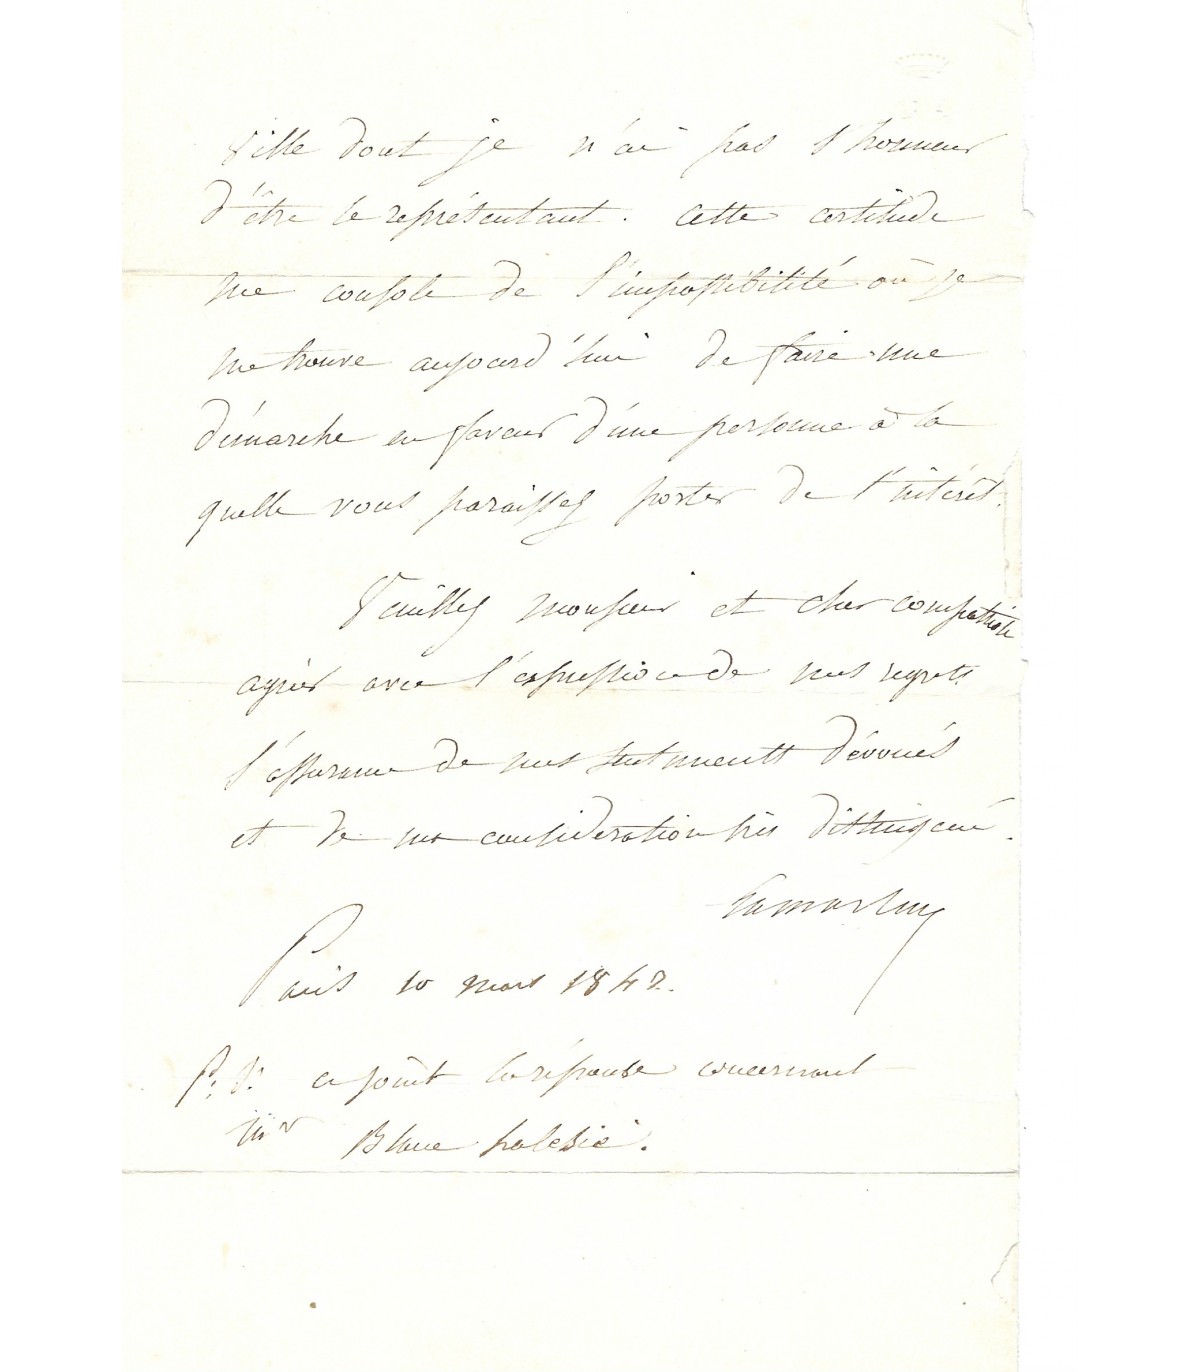 Ville dont je n'ai pas l'honneur
d'être le représentant. cette certitude
me console de l'impossibilité où je
me trouve aujourd'hui de faire une
démarche en faveur d'une personne à la
quelle vous paraissez porter de l'intérêt.
Veuillez monsieur et cher compatriote
agréer avec l'expression de mes regrets
l'assurance de mes sentiments dévoués
et de ma consideration très distinguée.
Lamartine
Paris 10 mars 1842.
P. S. ci joint la réponse concernant
Mr Blanc